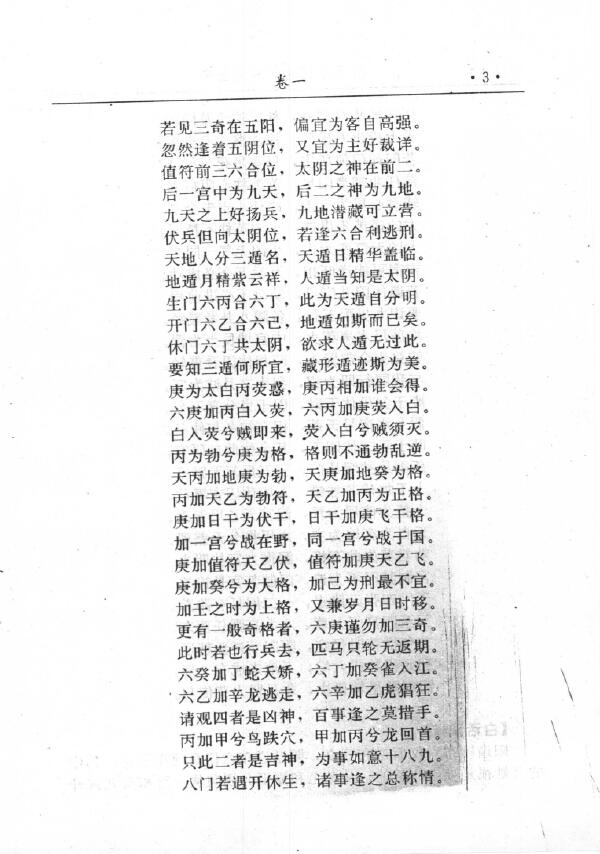 卷一 ·3·
若见三奇在五阳，偏宜为客自高强。
忽然逢着五阴位，又宜为主好裁详。
值符前三六合位，太阴之神在前二。
后一宫中为九天，后二之神为九地。
九天之上好扬兵，九地潜藏可立营。
伏兵但向太阴位，若逢六合利逃刑。
天地人分三遁名，天遁日精华盖临。
地遁月精紫云祥，人遁当知是太阴。
生门六丙合六丁，此为天遁自分明。
开门六乙合六己，地遁如斯而已矣。
休门六丁共太阴，欲求人遁无过此。
要知三遁何所宜，藏形遁迹斯为美。
庚为太白丙荧惑，庚丙相加谁会得。
六庚加丙白入荧，六丙加庚荧入白。
白入荧兮贼即来，荧入白兮贼须灭。
丙为勃兮庚为格，格则不通勃乱逆。
天丙加地庚为勃，天庚加地癸为格。
丙加天乙为勃符，天乙加丙为正格。
庚加日干为伏干，日干加庚飞干格。
加一宫兮战在野，同一宫兮战于国。
庚加值符天乙伏，值符加庚天乙飞。
庚加癸兮为大格，加己为刑最不宜。
加壬之时为上格，又兼岁月日时移。
更有一般奇格者，六庚谨勿加三奇。
此时若也行兵去，匹马只轮无返期。
六癸加丁蛇夭矫，六丁加癸雀入江。
六乙加辛龙逃走，六辛加乙虎猖狂。
请观四者是凶神，百事逢之莫措手。
丙加甲兮鸟跌穴，甲加丙兮龙回首。
只此二者是吉神，为事如意十八九。
八门若遇开休生，诸事逢之总称情。